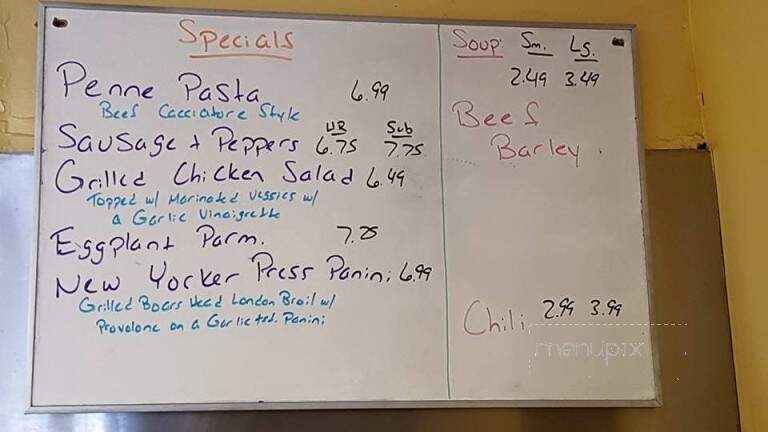 Specials
Penne Pasta 6.99
Beef Cacciatore Style
HR Sub
Sausage + Peppers 6.75 7.75
Grilled Chicken Salad 6.49
Topped w/ Marinated Veggies w/
a Garlic Vinaigrette
Eggplant Parm. 7.25
New Yorker Press Panini 6.99
Grilled Boars Head London Broil w/
Provolone on a Garlic tsd. Panini
Soup: Sm. Lg.
2.49 3.49
Beef
Barley
Chili 2.99 3.99
menupix